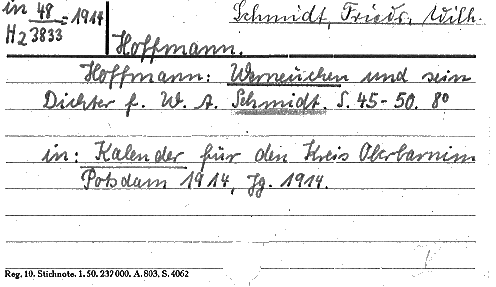 in 48 = 1914
H2 3833
Schmidt, Friedr. Wilh.
Hoffmann.
Hoffmann: Werneuchen und sein
Dichter f. W. A. Schmidt. S. 45-50. 8°
in: Kalender für den Kreis Oberbarnim
Potsdam 1914, Jg. 1914.
Reg. 10. Stichnote. 1. 50. 237000. A. 803. S. 4062